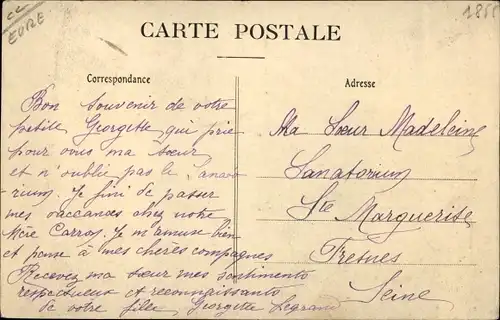 cc
EURE
CARTE POSTALE
Correspondance
Bon souvenir de votre
petite Georgette qui prie
pour vous ma sœur
et n'oublie pas le Sanato-
rium. Je fini de passer
mes vaccances chez notre
Mère Carras. Je m'amuse bien
et pense à mes chères compagnes
Recevez ma sœur mes sentiments
respectueux et reconnaissants
de votre fille Georgette Legrand
Adresse
Ma Sœur Madeleine
Sanatorium
Ste Marguerite
Fresnes
Seine